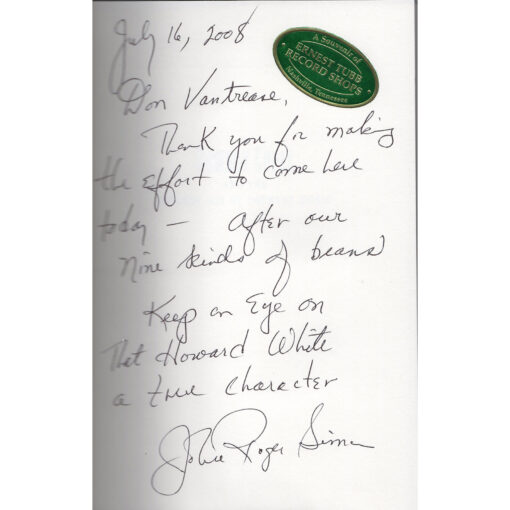 July 16, 2008
A Souvenir of
ERNEST TUBB
RECORD SHOPS
Nashville, Tennessee
Don Vantrease,
Thank you for making
the effort to come here
today — After our
nine kinds of beans
Keep an Eye on
That Howard White
a true character
John Roger Simon